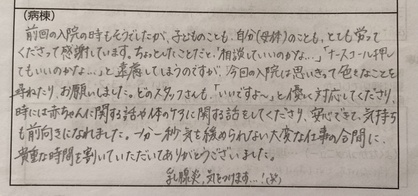 (病棟)
前回の入院の時もそうでしたが、子どものことも、自分(母体)のことも、とても労って
くださって感謝しています。ちょっとしたことだと「相談していいのかな…」「ナースコール押し
てもいいのかな…」と遠慮してしまうのですが、今回の入院は思いきって色々なことを
尋ねたり、お願いしました。どのスタッフさんも、「いいですよ〜」と優しく対応してくださり、
時には赤ちゃんに関する話や体のケアに関する話をしてくださり、安心できて、気持ち
も前向きになれました。一分一秒気を緩められない大変な仕事の合間に、
貴重な時間を割いていただいてありがとうございました。
乳腺炎、気をつけます…!(笑)